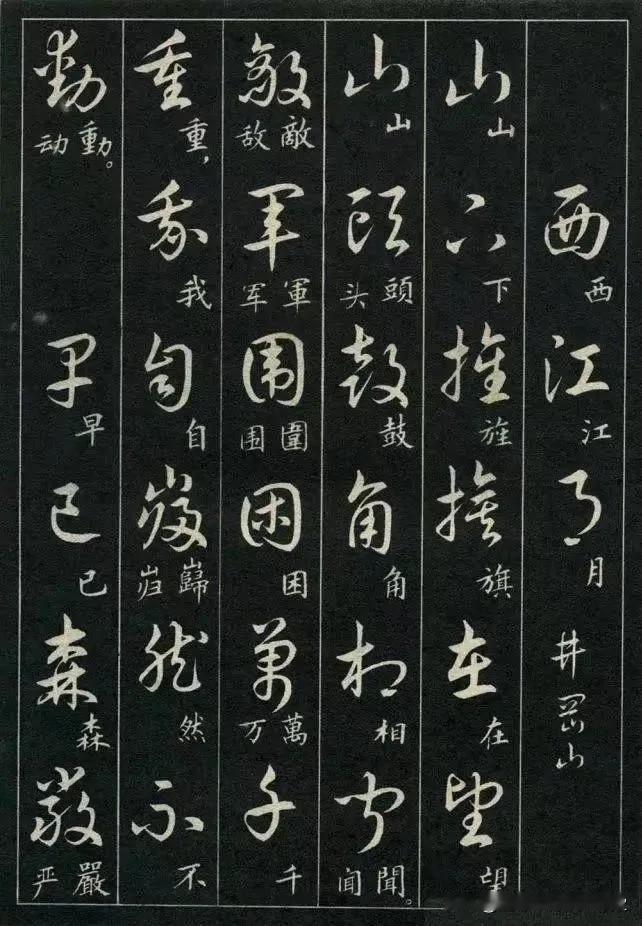 西西江江月月井岡山
山山下下旌旌旗旗在在望望
山山頭頭头鼓鼓角角相相聞聞闻。
敵敵敌軍軍军围圍围困困萬萬万千千
重重，我我自自巋巋岿然然不不
動動动。早早已已森森嚴嚴严